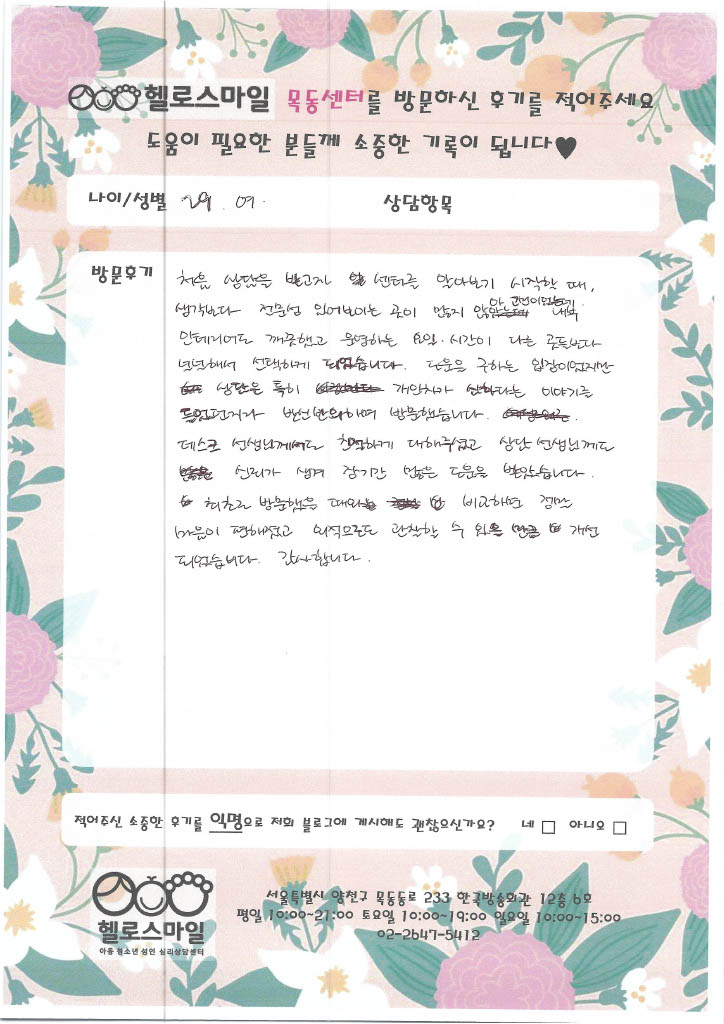 헬로스마일 목동센터를 방문하신 후기를 적어주세요
도움이 필요한 분들께 소중한 기록이 됩니다♥
나이/성별 29. 여. 상담항목
방문후기
처음 상담을 받고자 센터를 알아보기 시작할 때,
생각보다 전문성 있어보이는 곳이 많지 않았는데 내부
인테리어도 깨끗했고 운영하는 요일·시간이 다른 곳들보다
넉넉해서 선택하게 되었습니다. 도움을 구하는 입장이었지만
상담은 특히 개인차가 심하다는 이야기를
들었던지라 반신반의하며 방문했습니다.
데스크 선생님께서도 친절하게 대해주셨고 상담 선생님께도
신뢰가 생겨 장기간 많은 도움을 받았습니다.
최초로 방문했을 때와 비교하면 정말
마음이 편해졌고 외적으로도 관찰할 수 있을 만큼 개선
되었습니다. 감사합니다.
적어주신 소중한 후기를 익명으로 저희 블로그에 게시해도 괜찮으신가요? 네 □ 아니오 □
헬로스마일
아동 청소년 성인 심리상담센터
서울특별시 양천구 목동동로 233 한국방송회관 12층 6호
평일 10:00~21:00 토요일 10:00~19:00 일요일 10:00~15:00
02-2647-5412